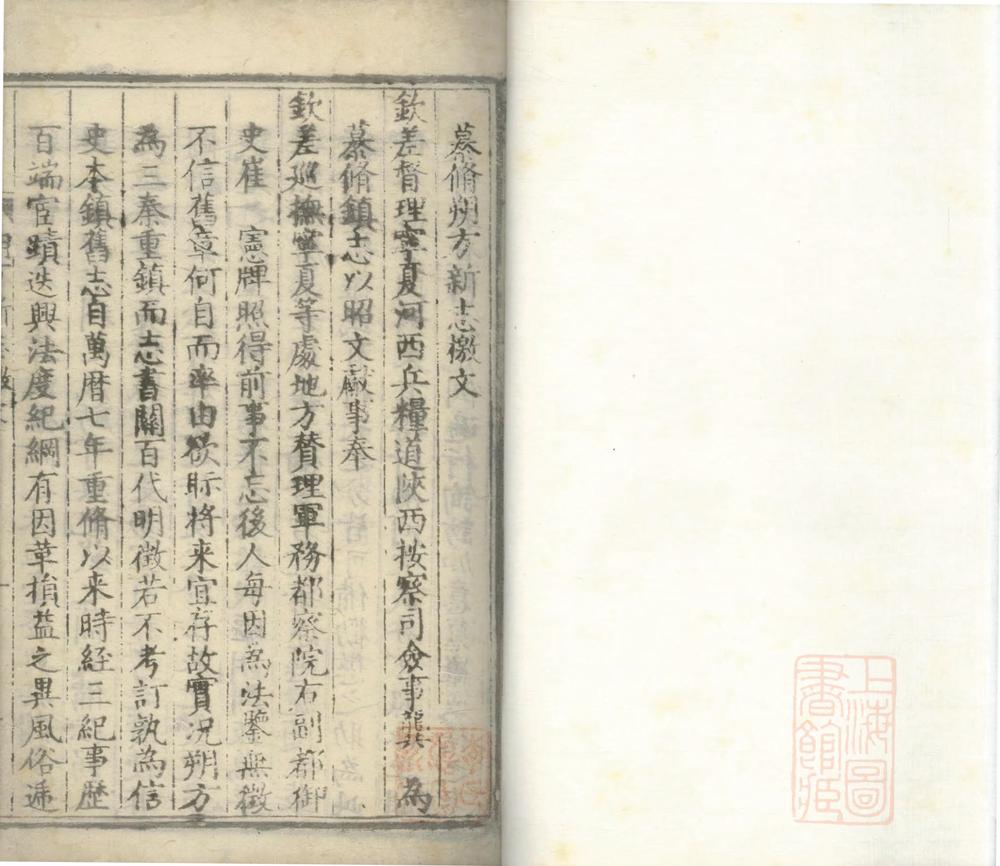 上海圖
書館藏
纂脩朔方新志檄文
欽差督理寧夏河西兵糧道陝西按察司僉事龔 為
纂脩鎮志以昭文獻事奉
欽差巡撫寧夏等處地方贊理軍務都察院右副都御
史崔 憲牌照得前事不忘後人每因為法鑒無徵
不信舊章何自而率由欲眎將来宜存故實况朔方
為三秦重鎮而志書關百代明徵若不考訂孰為信
史本鎮舊志自萬曆七年重脩以来時経三紀事歷
百端宦蹟迭興法度紀綱有因革損益之異風俗逓